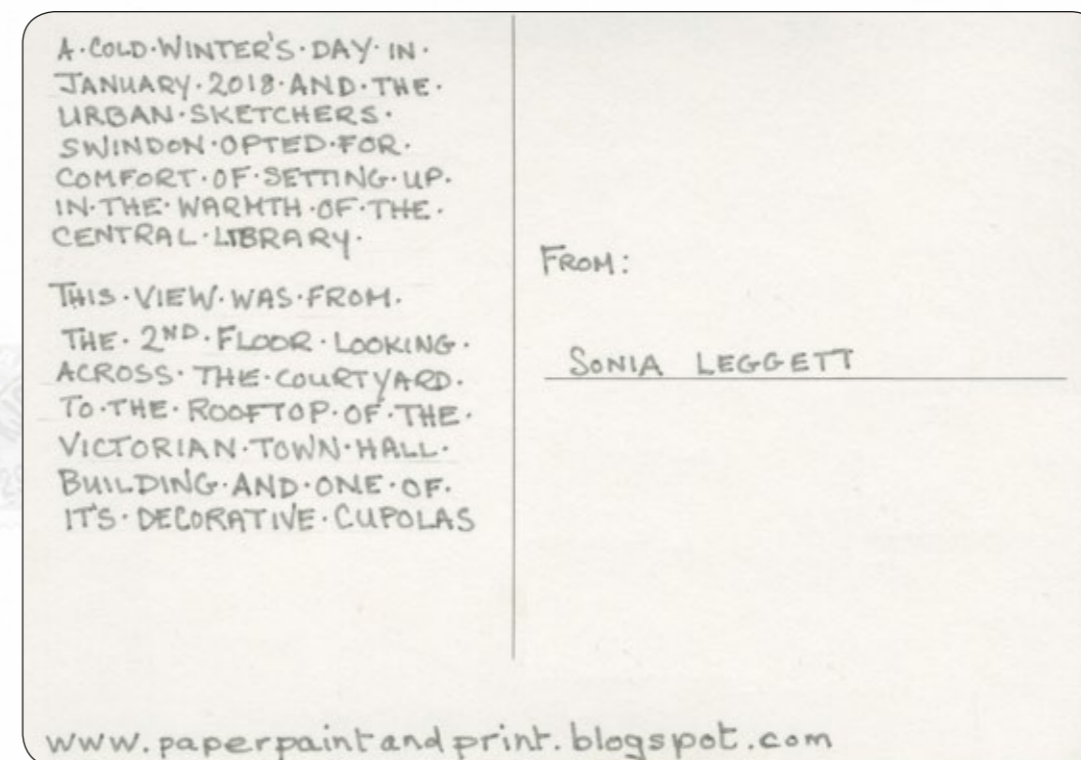 A·COLD·WINTER'S·DAY·IN·
JANUARY·2018·AND·THE·
URBAN·SKETCHERS·
SWINDON·OPTED·FOR·
COMFORT·OF·SETTING·UP·
IN·THE·WARMTH·OF·THE·
CENTRAL·LIBRARY·
THIS·VIEW·WAS·FROM·
THE·2ND·FLOOR·LOOKING·
ACROSS·THE·COURTYARD·
TO·THE·ROOFTOP·OF·THE·
VICTORIAN·TOWN·HALL·
BUILDING·AND·ONE·OF·
IT'S·DECORATIVE·CUPOLAS
FROM:
SONIA LEGGETT
www.paperpaintandprint.blogspot.com